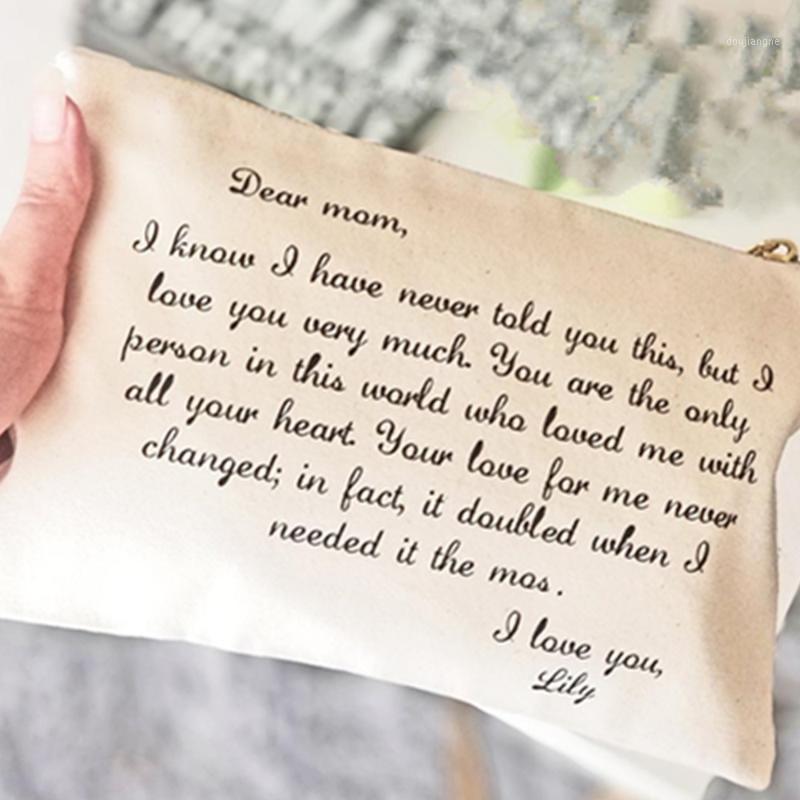 doujiangne
Dear mom,
I know I have never told you this, but I
love you very much. You are the only
person in this world who loved me with
all your heart. Your love for me never
changed; in fact, it doubled when I
needed it the mos.
I love you,
Lily